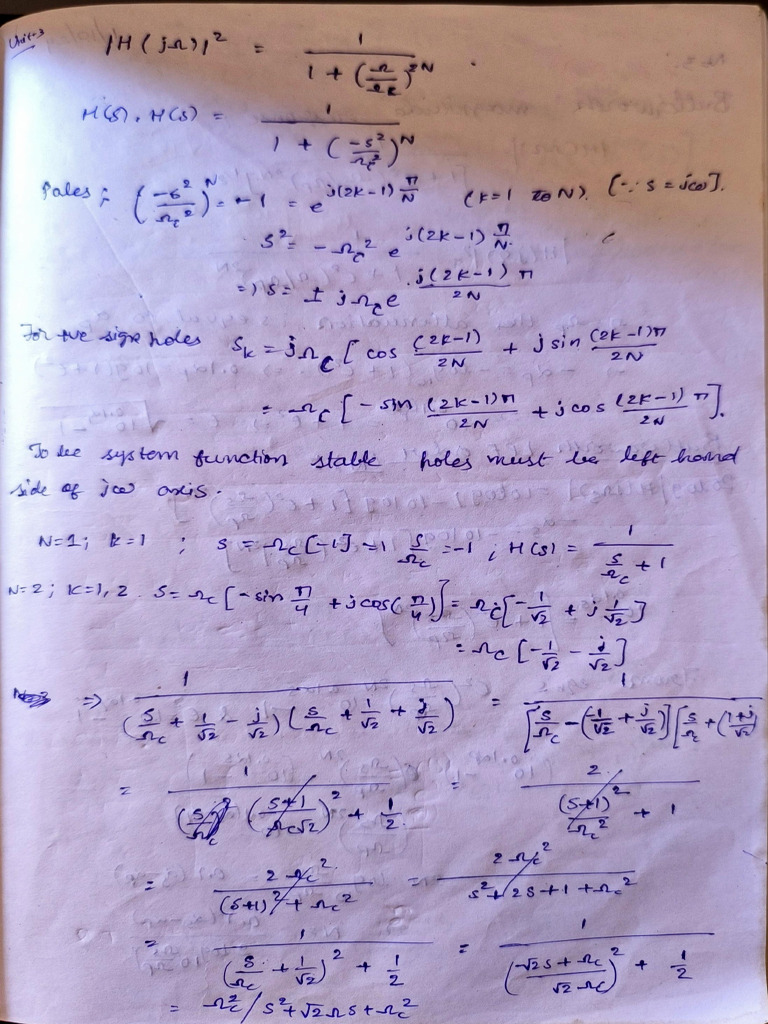 Unit-3
|H(jΩ)|² = 1 / (1 + (Ω/Ωc)^2N) .
H(s) . H(s) = 1 / (1 + (-s²/Ωc²)^N)
Poles ; (-s²/Ωc²)^N = -1 = e^(j(2k-1) π/N) (k=1 to N). [∵ s = jω].
s² = -Ωc² e^(j(2k-1) π/N)
=) s = ± jΩc e^(j(2k-1)π/2N)
For +ve sign poles Sk = jΩc [ cos (2k-1)/2N + j sin (2k-1)π/2N
= Ωc [ -sin (2k-1)π/2N + j cos (2k-1)π/2N ].
To be system function stable poles must be left hand
side of jω axis.
N=1; k=1 ; s = Ωc[-1] = s/Ωc = -1 ; H(s) = 1 / (s/Ωc + 1)
N=2; k=1,2 s = Ωc [-sin π/4 + j cos(π/4)] = Ωc[-1/√2 + j 1/√2]
= Ωc [-1/√2 - j/√2]
=> 1 / ((s/Ωc + 1/√2 - j/√2) (s/Ωc + 1/√2 + j/√2)) = 1 / ([s/Ωc - (-1/√2 + j/√2)] [s/Ωc + (1+j/√2)
= 1 / (((s+1)/Ωc√2)² + 1/2) = 2 / ((s+1)²/Ωc² + 1)
= 2Ωc² / ((s+1)² + Ωc²) = 2Ωc² / (s² + 2s + 1 + Ωc²)
= 1 / ((s/Ωc + 1/√2)² + 1/2) = 1 / (((√2s + Ωc)/(√2 Ωc))² + 1/2)
= Ωc² / s² + √2Ωs + Ωc²